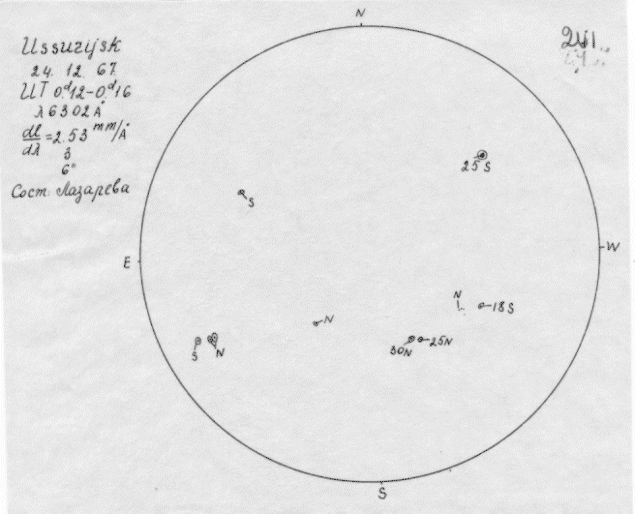 Ussurijsk
24. 12. 67.
UT 0.ᵈ12-0.ᵈ16
λ 6302 Å
dl/dλ = 2.53 mm/Å
3
6"
Сост. Лазарева
N
25 S
S
E
W
N
18S
N
S
N
30N
25N
S